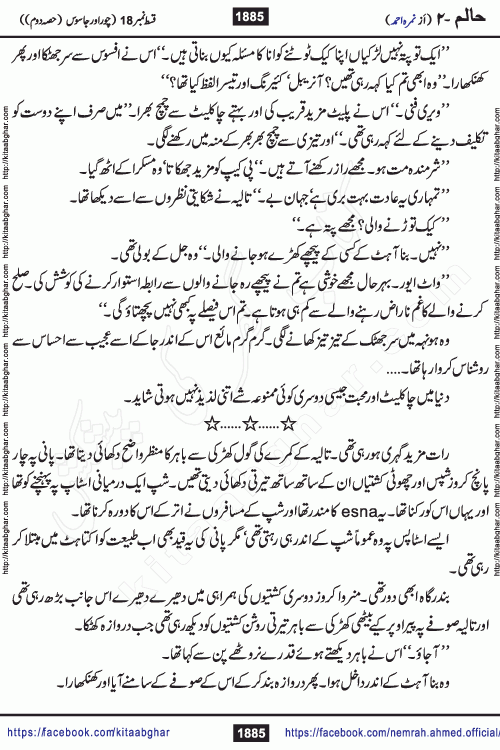 حالم -۲ (از نمرہ احمد) 1885 قسط نمبر 18 (چور اور جاسوس (حصہ دوم))
”ایک تو پتہ نہیں لڑکیاں اپنا کیک ٹوٹنے کو انا کا مسئلہ کیوں بناتی ہیں۔“ اس نے افسوس سے سر جھٹکا اور پھر
کھنکھارا۔ ”وہ ابھی تم کیا کہہ رہی تھیں؟ آنریبل' کئیرنگ اور تیسرا لفظ کیا تھا؟“
”ویری فنی۔“ اس نے پلیٹ مزید قریب کی اور بہتے چاکلیٹ سے چمچ بھرا۔ ”میں صرف اپنے دوست کو
تکلیف دینے کے لئے کہہ رہی تھی۔“ اور تیزی سے چمچ بھر بھر کے منہ میں رکھنے لگی۔
”شرمندہ مت ہو۔ مجھے راز رکھنے آتے ہیں۔“ پی کیپ کو مزید جھکاتا' وہ مسکرا کے اٹھ گیا۔
”تمہاری یہ عادت بہت بری ہے' جہان بے۔“ تالیہ نے شکایتی نظروں سے اسے دیکھا تھا۔
”کیک توڑنے والی؟ مجھے پتہ ہے۔“
”نہیں۔ بنا آہٹ کے کسی کے پیچھے کھڑے ہو جانے والی۔“ وہ جل کے بولی تھی۔
”واٹ ایور۔ بہرحال مجھے خوشی ہے تم نے پیچھے رہ جانے والوں سے رابطہ استوار کرنے کی کوشش کی۔ صلح
کرنے والے کا غم ناراض رہنے والے سے کم ہی ہوتا ہے۔ تم اس فیصلے پہ کبھی نہیں پچھتاؤ گی۔“
وہ ہونہہ میں سر جھٹک کے تیز تیز کھانے لگی۔ گرم گرم مائع اس کے اندر جا کے اسے عجیب سے احساس سے
روشناس کروا رہا تھا۔....
دنیا میں چاکلیٹ اور محبت جیسی دوسری کوئی ممنوعہ شے اتنی لذیذ نہیں ہوتی شاید۔
☆......☆......☆
رات مزید گہری ہو رہی تھی۔ تالیہ کے کمرے کی گول کھڑکی سے باہر کا منظر واضح دکھائی دیتا تھا۔ پانی پہ چار
پانچ کروز شپس اور چھوٹی کشتیاں ان کے ساتھ ساتھ تیرتی دکھائی دیتی تھیں۔ شپ ایک درمیانی اسٹاپ پہ پہنچنے کو تھا
اور یہاں اس کو رکنا تھا۔ یہ esna کا مندر تھا اور شپ کے مسافروں نے اتر کے اس کا دورہ کرنا تھا۔
ایسے اسٹاپس پہ وہ عموماً شپ کے اندر ہی رہتی تھی' مگر پانی کی یہ قید بھی اب طبیعت کو اکتاہٹ میں مبتلا کر
رہی تھی۔
بندرگاہ ابھی دور تھی۔ منروا کروز دوسری کشتیوں کی ہمراہی میں دھیرے دھیرے اس جانب بڑھ رہی تھی
اور تالیہ صوفے پہ پیر اوپر کیے بیٹھی کھڑکی سے باہر تیرتی روشن کشتیوں کو دیکھ رہی تھی جب دروازہ کھٹکا۔
”آجاؤ۔“ اس نے باہر دیکھتے ہوئے قدرے نروٹھے پن سے کہا تھا۔
وہ بنا آہٹ کے اندر داخل ہوا۔ پھر دروازہ بند کر کے اس کے صوفے کے سامنے آیا اور کھنکھارا۔
https://facebook.com/kitaabghar 1885 https://facebook.com/nemrah.ahmed.official/
http://kitaabghar.com http://kitaabghar.com http://kitaabghar.com http://kitaabghar.com http://kitaabghar.com